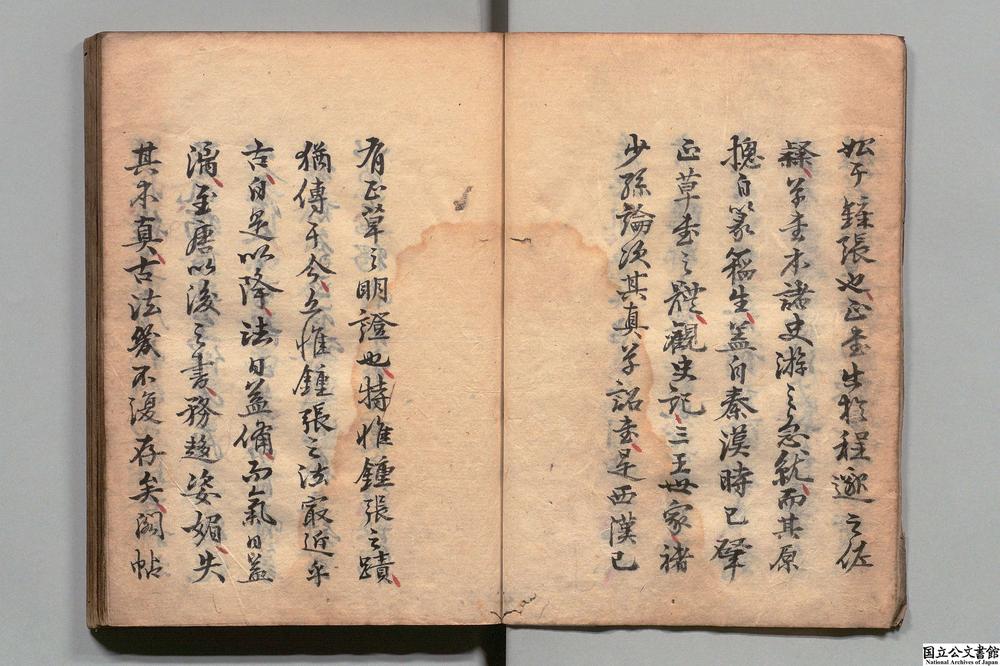 始于鍾張也正書出於程邈之佐
隸草書本諸史游之急就而其原
摠自篆籀生蓋自秦漢時已肇
正草書之體觀史記三王世家褚
少孫論次其真草詔書是西漢已
有正草之明證也特惟鍾張之蹟
猶傳于今立惟鍾張之法最近乎
古自是以降法日益備而氣日益
漓至唐以後之書務趨姿媚失
其本真古法幾不復存矣閣帖
国立公文書館
National Archives of Japan